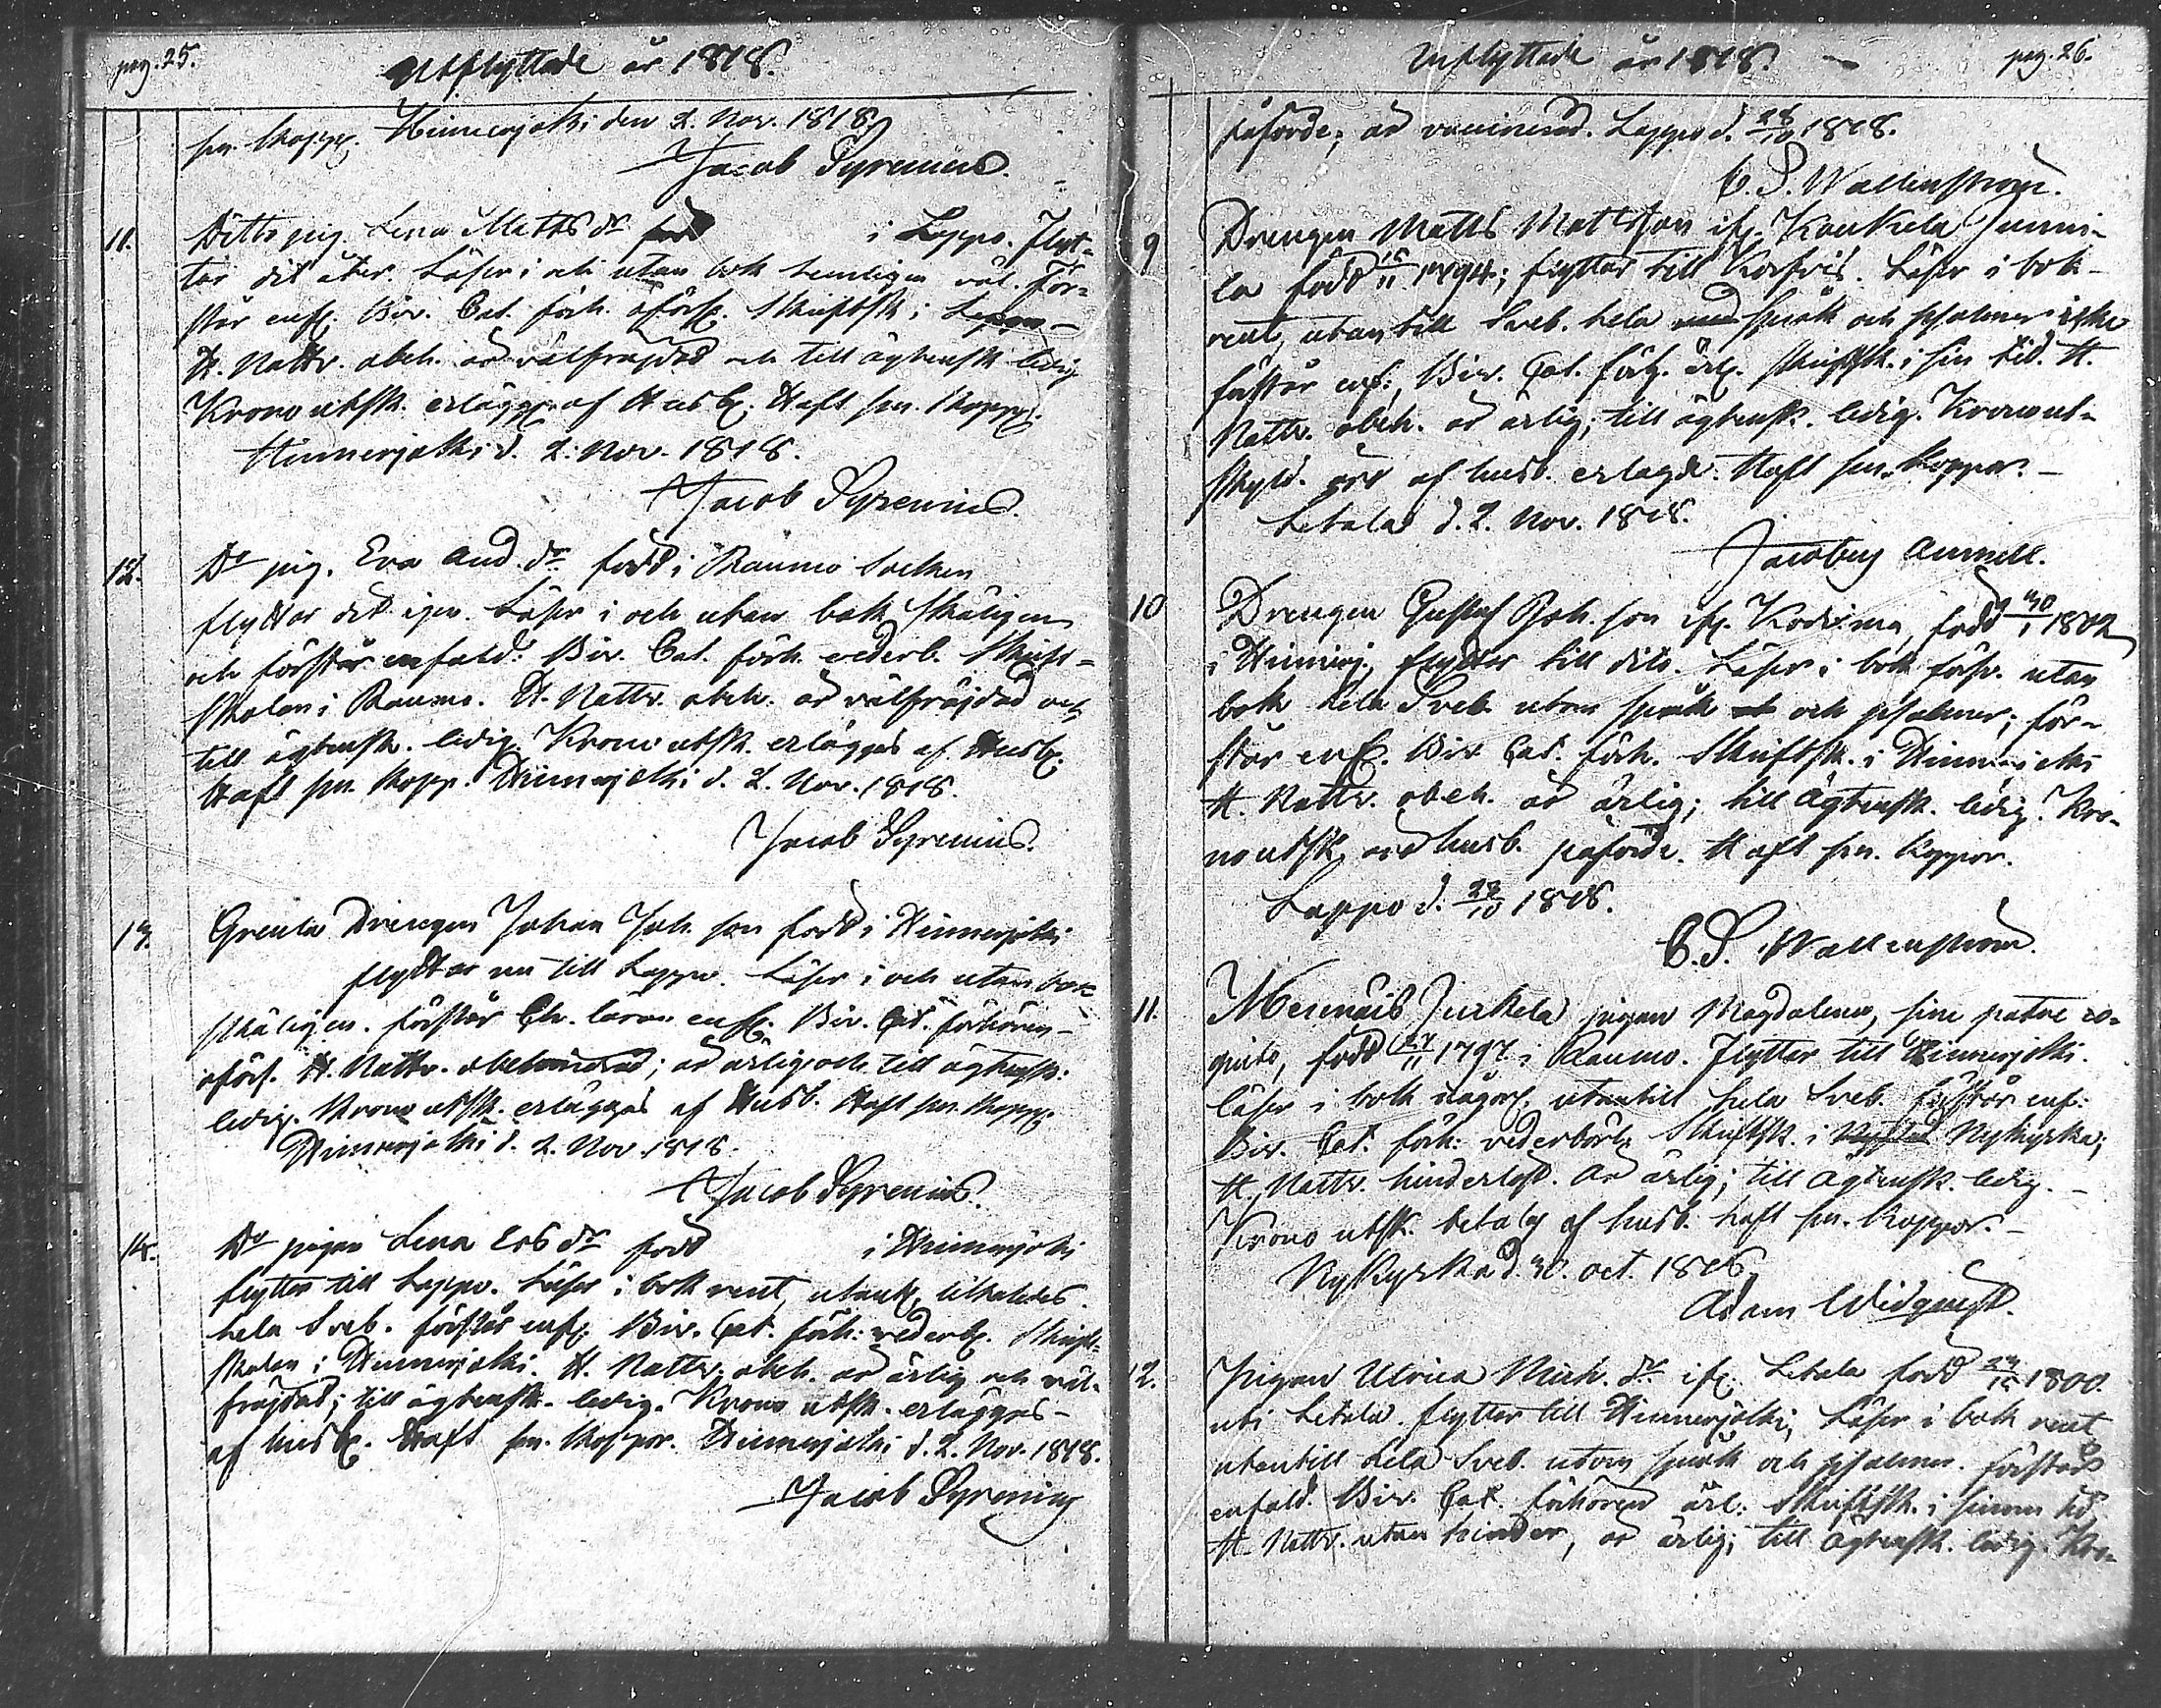 pag. 25.
Utflyttade år 1818.
sm. Koppr. Hinnerjoki den 2. Nov. 1818.
Jacob Syrenius.
11. Ditto pig. Lena Matts dr född i Lappo. Flyt-
tar dit åter. Läser i och utan bok temligen väl. För-
står enf. Bir. Cat. förh. Skriftsk. i Lappo
H. Nattv. obeh. är välfräjdad och till ägtensk. ledig
Krono utsk. erlägges af Husb. Haft sm. Kopper.
Hinnerjoki d. 2. Nov. 1818.
Jacob Syrenius.
12. Do pig. Eva And. dr född i Raumo Socken
flyttar dit igen. Läser i och utan bok skäligen
och förstår enfald. Bir. Cat. förh. vederb. Skrift-
skolan i Raumo. H. Nattv. obeh. är välfräjdad och
till ägtensk. ledig. Krono utsk. erlägges af Husb.
Haft sm. Kopp. Hinnerjoki d. 2. Nov. 1818.
Jacob Syrenius.
13. Greula Drengen Johan Joh. son född i Hinnerjoki
flyttar nu till Lappo. Läser i och utan bok
skäligen. förstår Ch. läran enf. Bir. Cat. förhören
oförs. H. Nattv. obehindrad; är ärlig och till ägtensk.
ledig. Krono utsk. erlägges af Husb. Haft sm. Kopp.
Hinnerjoki d. 2. Nov. 1818.
Jacob Syrenius.
14. Do pigan Lena Ers dr född i Hinnerjoki
flytter till Lappo. Läser i bok rent, utant.
hela Sveb. förstår enf. Bir. Cat. förh. vederb. Skrift-
skolan i Hinnerjoki. H. Nattv. obeh. är ärlig och väl-
fräjdad; till ägtensk. ledig. Krono utsk. erlägges
af husb. Haft sm. Koppor. Hinnerjoki d. 2. Nov. 1818.
Jacob Syrenius
Inflyttade år 1818.
pag. 26.
påförde; är vaccinerad. Lappo d. 28/10 1818.
C. S. Wallenstrom.
9 Drengen Matts Mattsson if. Kaukela Junni-
la född 1794; flyttar till Korfvis. Läser i bok
rent, utantill Sveb. hela språk och psalmer
förstår enf., Bir. Cat. förh. årl. skriftsk. i sin tid. H.
Nattv. obeh. är ärlig; till ägtensk. ledig. Kronout-
skyld. äro af husb. erlagde. Haft sm. Koppor.
Letala d. 2. Nov. 1818.
Jacobus Aurnell.
10 Drengen Gustaf Joh. son if. född 30/1 1802
i Hinnerj. flyttar till dito. Läser i bok förs. utan
bok hela Sveb. utom språk och psalmer; för-
står enf. Bir. Cat. förh. Skriftsk. i Hinnerjoki
H. Nattv. obeh. är ärlig; till Ägtensk. ledig. Kro-
noutsk. äro husb. påförde. Haft sm. Koppor.
Lappo d. 28/10 1818.
C. S. Wallenstrom
11. Merinais Jukela pigan Magdalena, sine patre co-
gnito, född 27/11 1797 i Raumo. Flytter till Hinnerjoki.
läser i bok någorl. utantill hela Sveb. förstår enf.
Bir. Cat. förh. vederbörl. Skriftsk. i Nykyrka;
H. Nattv. hinderlöst. är ärlig; till Ägtensk. ledig.
Krono utsk. betalas af husb. haft sm. koppor.
Nykyrka d. 30. oct. 1818
Adam Widquist.
12. Pigan Ulrica Mich. dr if. Letala född 1800.
uti Letala. flytter till Hinnerjoki, Läser i bok rent
utantill hela Sveb. utom språk och psalmer. förstår
enfald. Bir. Cat. förhören årl. Skriftsk. i sinom tid
H. Nattv. utan hinder, är ärlig; till Ägtensk. ledig. Kro-